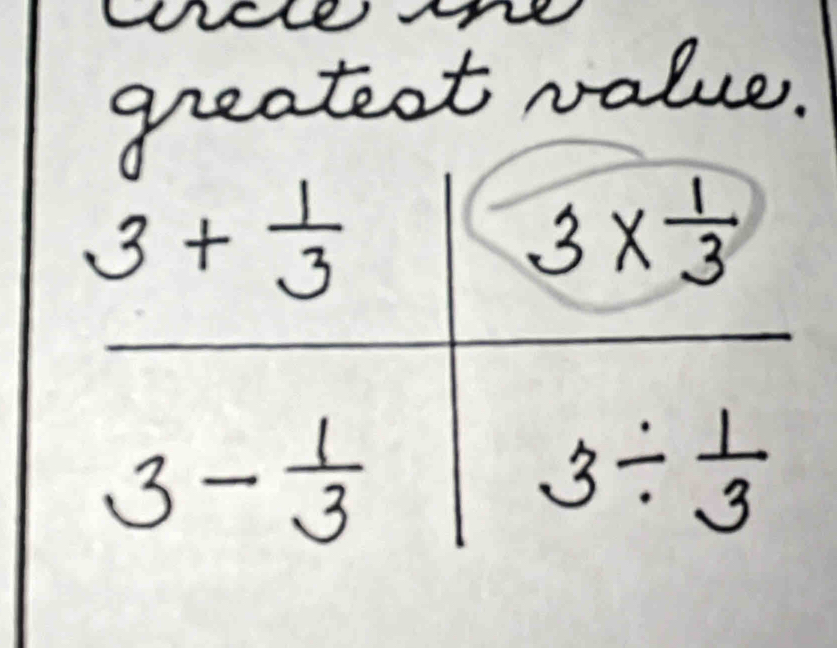 Circle the
greatest value.
3 + 1/3
3 X 1/3
3 - 1/3
3 ÷ 1/3